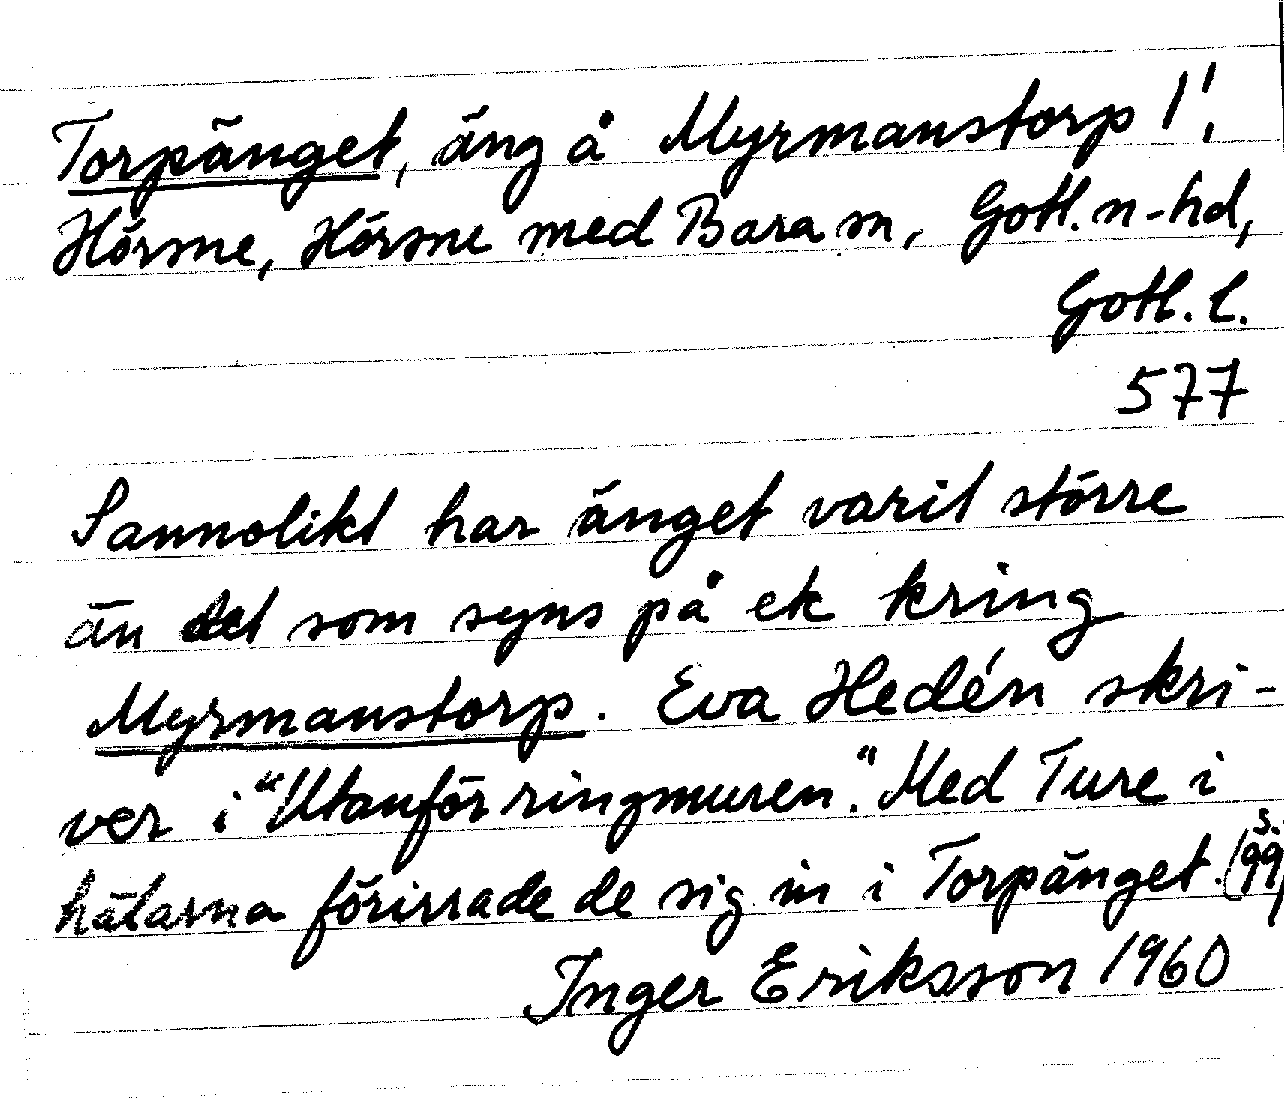 Torpänget, äng å Myrmanstorp 1¹,
Hörsne, Hörsne med Bara sn, Gotl. n-hd,
Gotl. l.
577
Sannolikt har änget varit större
än det som syns på ek kring
Myrmanstorp. Eva Hedén skri-
ver i "Utanför ringmuren". Med Ture i
hälarna förirrade de sig in i Torpänget. (s. 99)
Inger Eriksson 1960